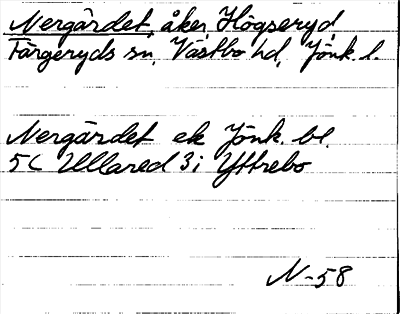 Nergärdet, åker, Högseryd
Färgeryds sn, Västbo hd, Jönk. l.
Nergärdet ek Jönk. bl.
5C Ullared 3i Yttrebo
N-58